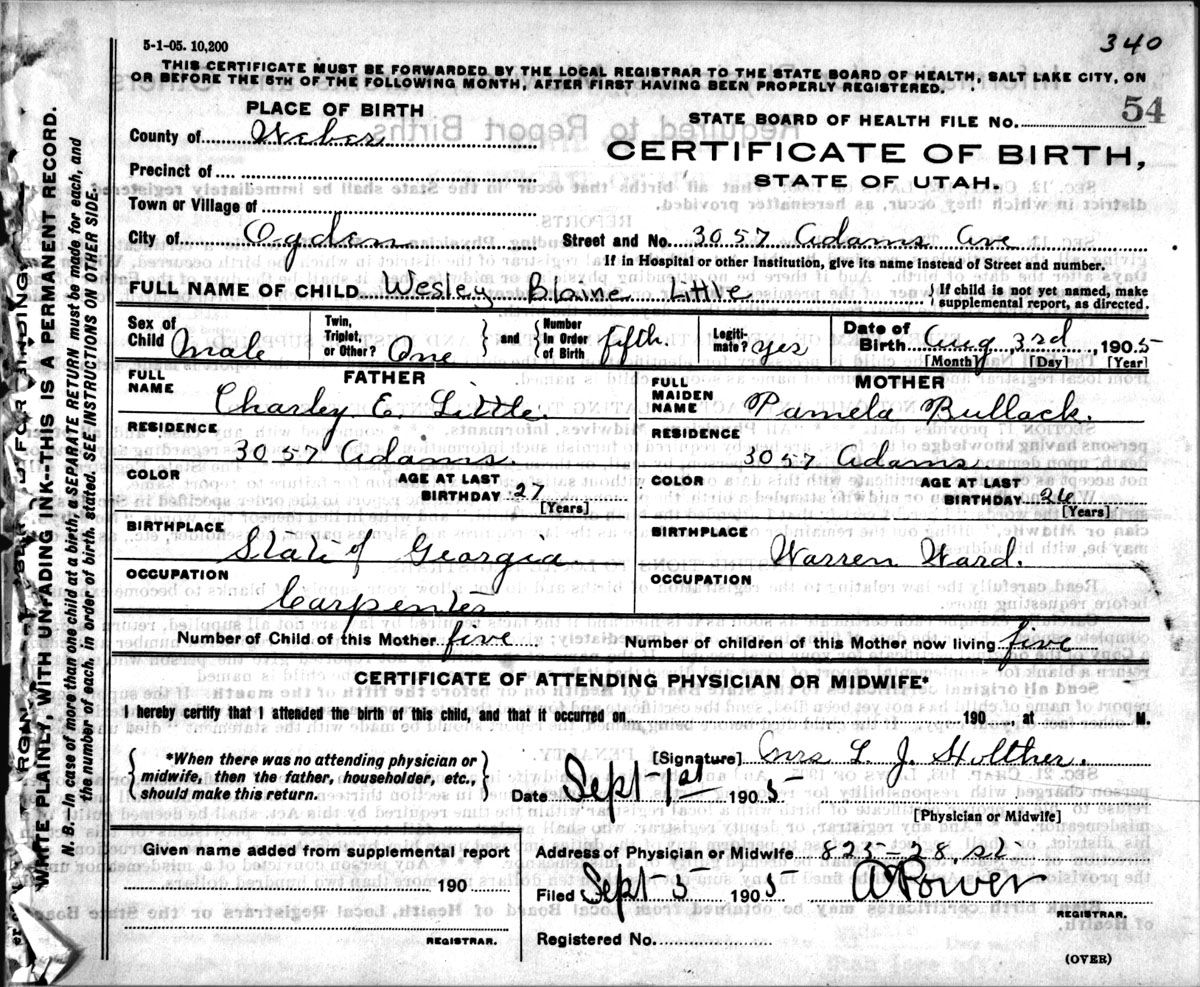 5-1-05. 10,200
340
THIS CERTIFICATE MUST BE FORWARDED BY THE LOCAL REGISTRAR TO THE STATE BOARD OF HEALTH, SALT LAKE CITY, ON
OR BEFORE THE 5TH OF THE FOLLOWING MONTH, AFTER FIRST HAVING BEEN PROPERLY REGISTERED.
PLACE OF BIRTH
STATE BOARD OF HEALTH FILE NO. 54
County of Weber
CERTIFICATE OF BIRTH,
Precinct of
STATE OF UTAH.
Town or Village of
City of Ogden Street and No. 3057 Adams Ave
If in Hospital or other Institution, give its name instead of Street and number.
FULL NAME OF CHILD Wesley Blaine Little { If child is not yet named, make
supplemental report, as directed.
Sex of Child Male
Twin, Triplet, or Other? One } and { Number In Order of Birth fifth.
Legitimate? yes
Date of Birth Aug 3rd, 1905
[Month] [Day] [Year]
FATHER
FULL NAME Charley E. Little.
RESIDENCE
3057 Adams.
COLOR AGE AT LAST BIRTHDAY 27
[Years]
BIRTHPLACE
State of Georgia
OCCUPATION
Carpenter
MOTHER
FULL MAIDEN NAME Pamela Bullack.
RESIDENCE
3057 Adams.
COLOR AGE AT LAST BIRTHDAY 26
[Years]
BIRTHPLACE
Warren Ward.
OCCUPATION
Number of Child of this Mother five Number of children of this Mother now living five
CERTIFICATE OF ATTENDING PHYSICIAN OR MIDWIFE*
I hereby certify that I attended the birth of this child, and that it occurred on 190 at M.
{ *When there was no attending physician or
midwife, then the father, householder, etc.,
should make this return. }
[Signature] Mrs L. J. Holther.
Date Sept 1st 1905
[Physician or Midwife]
Given name added from supplemental report
190
REGISTRAR.
Address of Physician or Midwife 825-28,
Filed Sept 5 1905 Power
REGISTRAR.
Registered No.
(OVER)
WRITE PLAINLY, WITH UNFADING INK--THIS IS A PERMANENT RECORD.
N. B. In case of more than one child at a birth, a SEPARATE RETURN must be made for each, and
the number of each, in order of birth, stated. SEE INSTRUCTIONS ON OTHER SIDE.